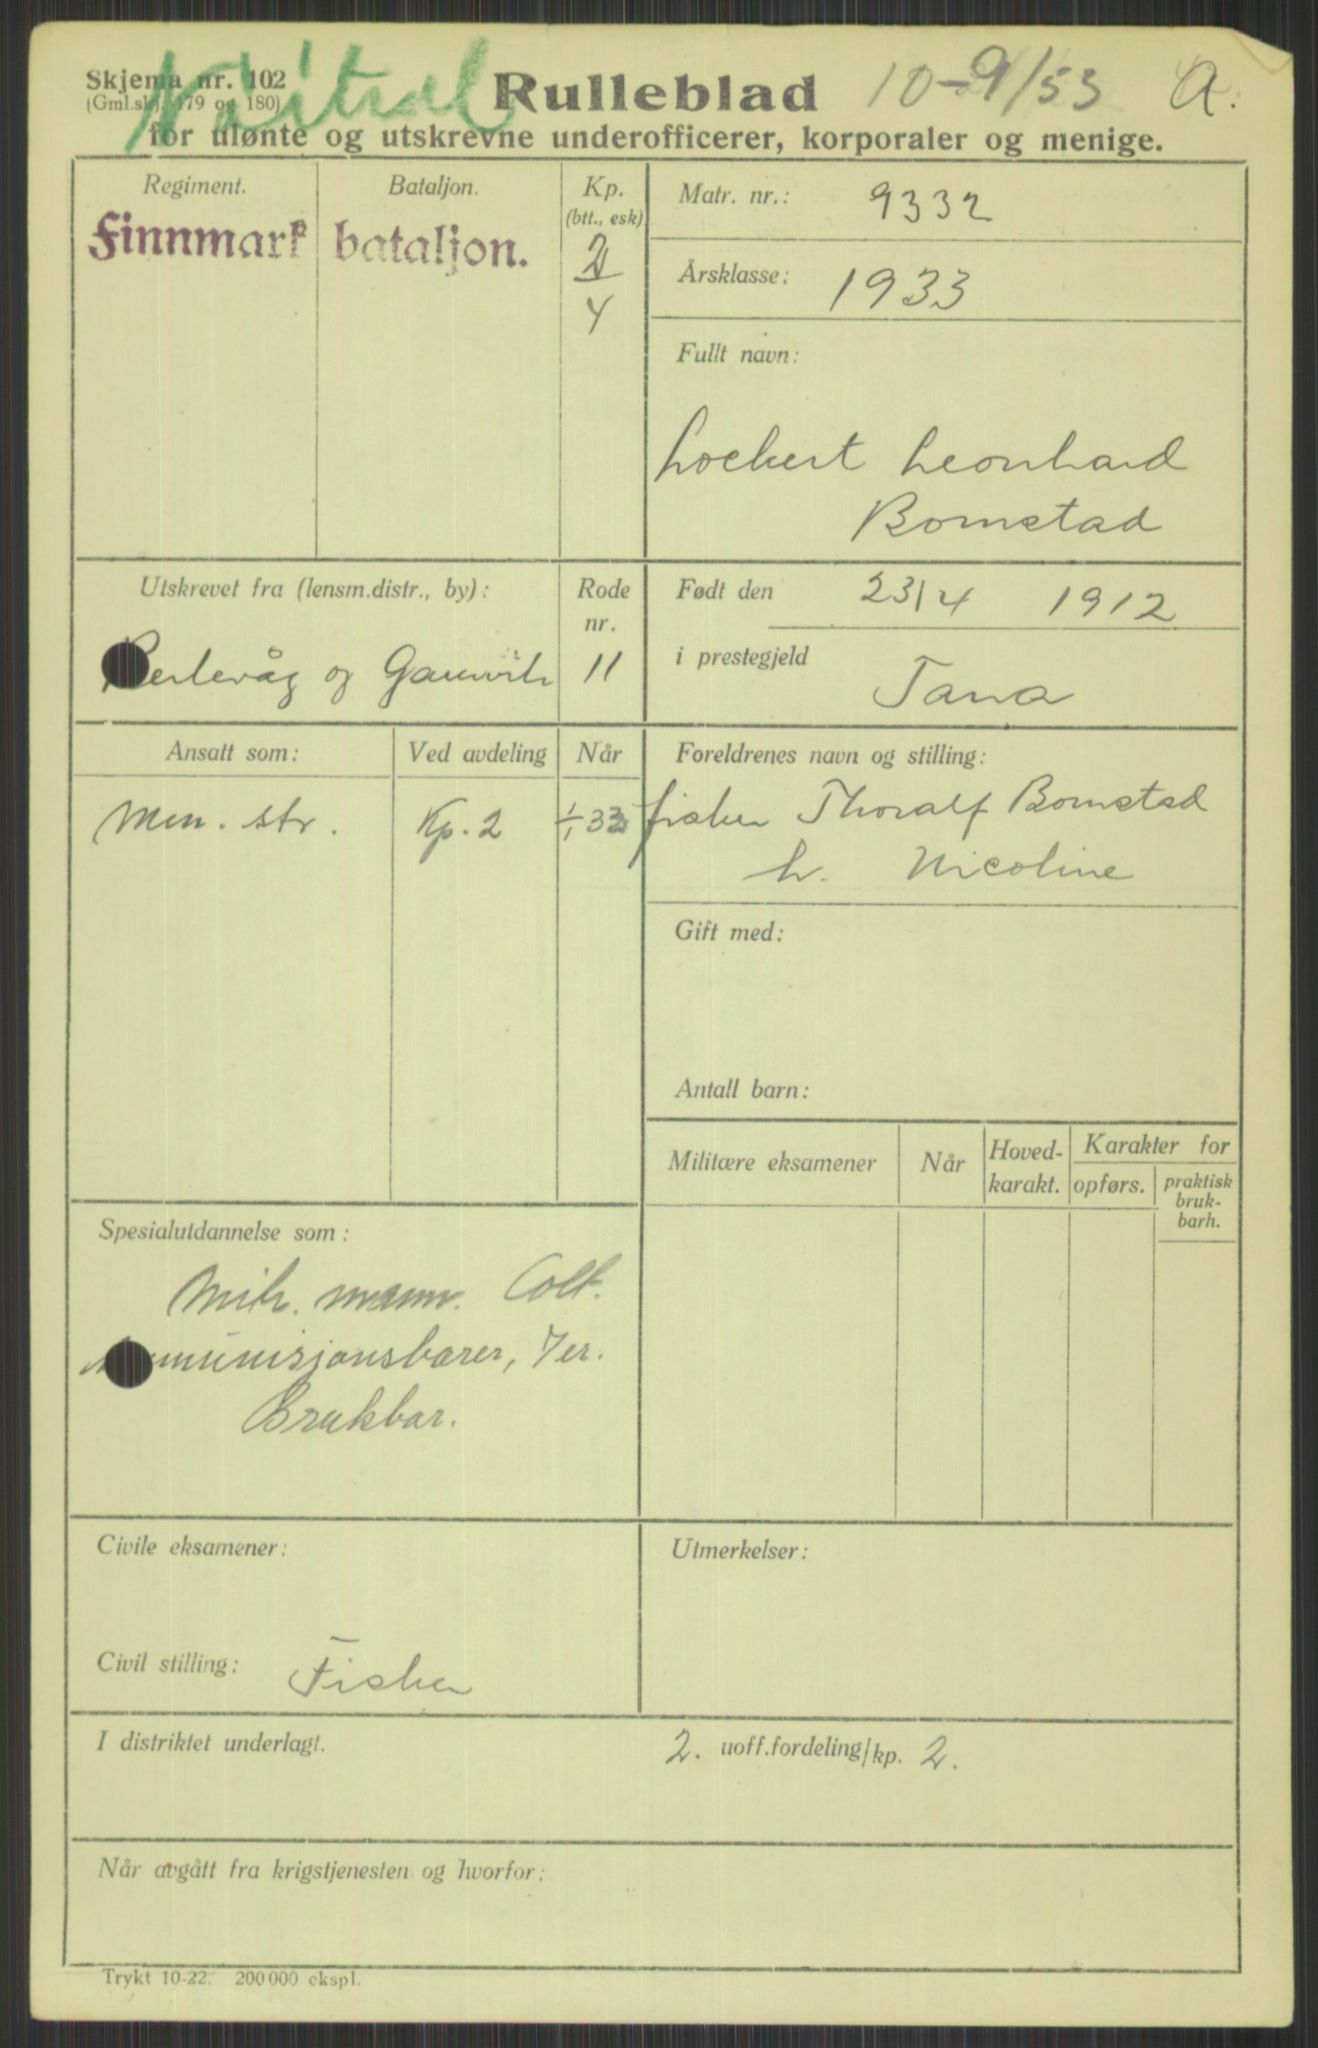 Skjema nr. 102
(Gml.skj. 179 og 180)
Nøitral
Rulleblad
10-9/53 A.
for ulønte og utskrevne underofficerer, korporaler og menige.
Regiment. Bataljon. Kp.
(btt., esk)
Finnmark bataljon.
2
4
Matr. nr.: 9332
Årsklasse: 1933
Fullt navn:
Lockert Leonhard
Bomstad
Utskrevet fra (lensm.distr., by): Rode
nr.
Berlevåg og Gamvik 11
Født den 23/4 1912
i prestegjeld Tana
Ansatt som: Ved avdeling Når
Men. str. Kp. 2 1/1 33
Foreldrenes navn og stilling:
fisker Thoralf Bomstad
h. Nicoline
Gift med:
Antall barn:
Militære eksamener Når Hoved-
karakt. Karakter for
opførs. praktisk
bruk-
barh.
Spesialutdannelse som:
Mitr. mann. Colt.
Ammunisjonsbærer, 7er.
Brukbar.
Civile eksamener:
Utmerkelser:
Civil stilling: Fisker
I distriktet underlagt.
2. uoff.fordeling/kp. 2.
Når avgått fra krigstjenesten og hvorfor:
Trykt 10-22. 200000 ekspl.